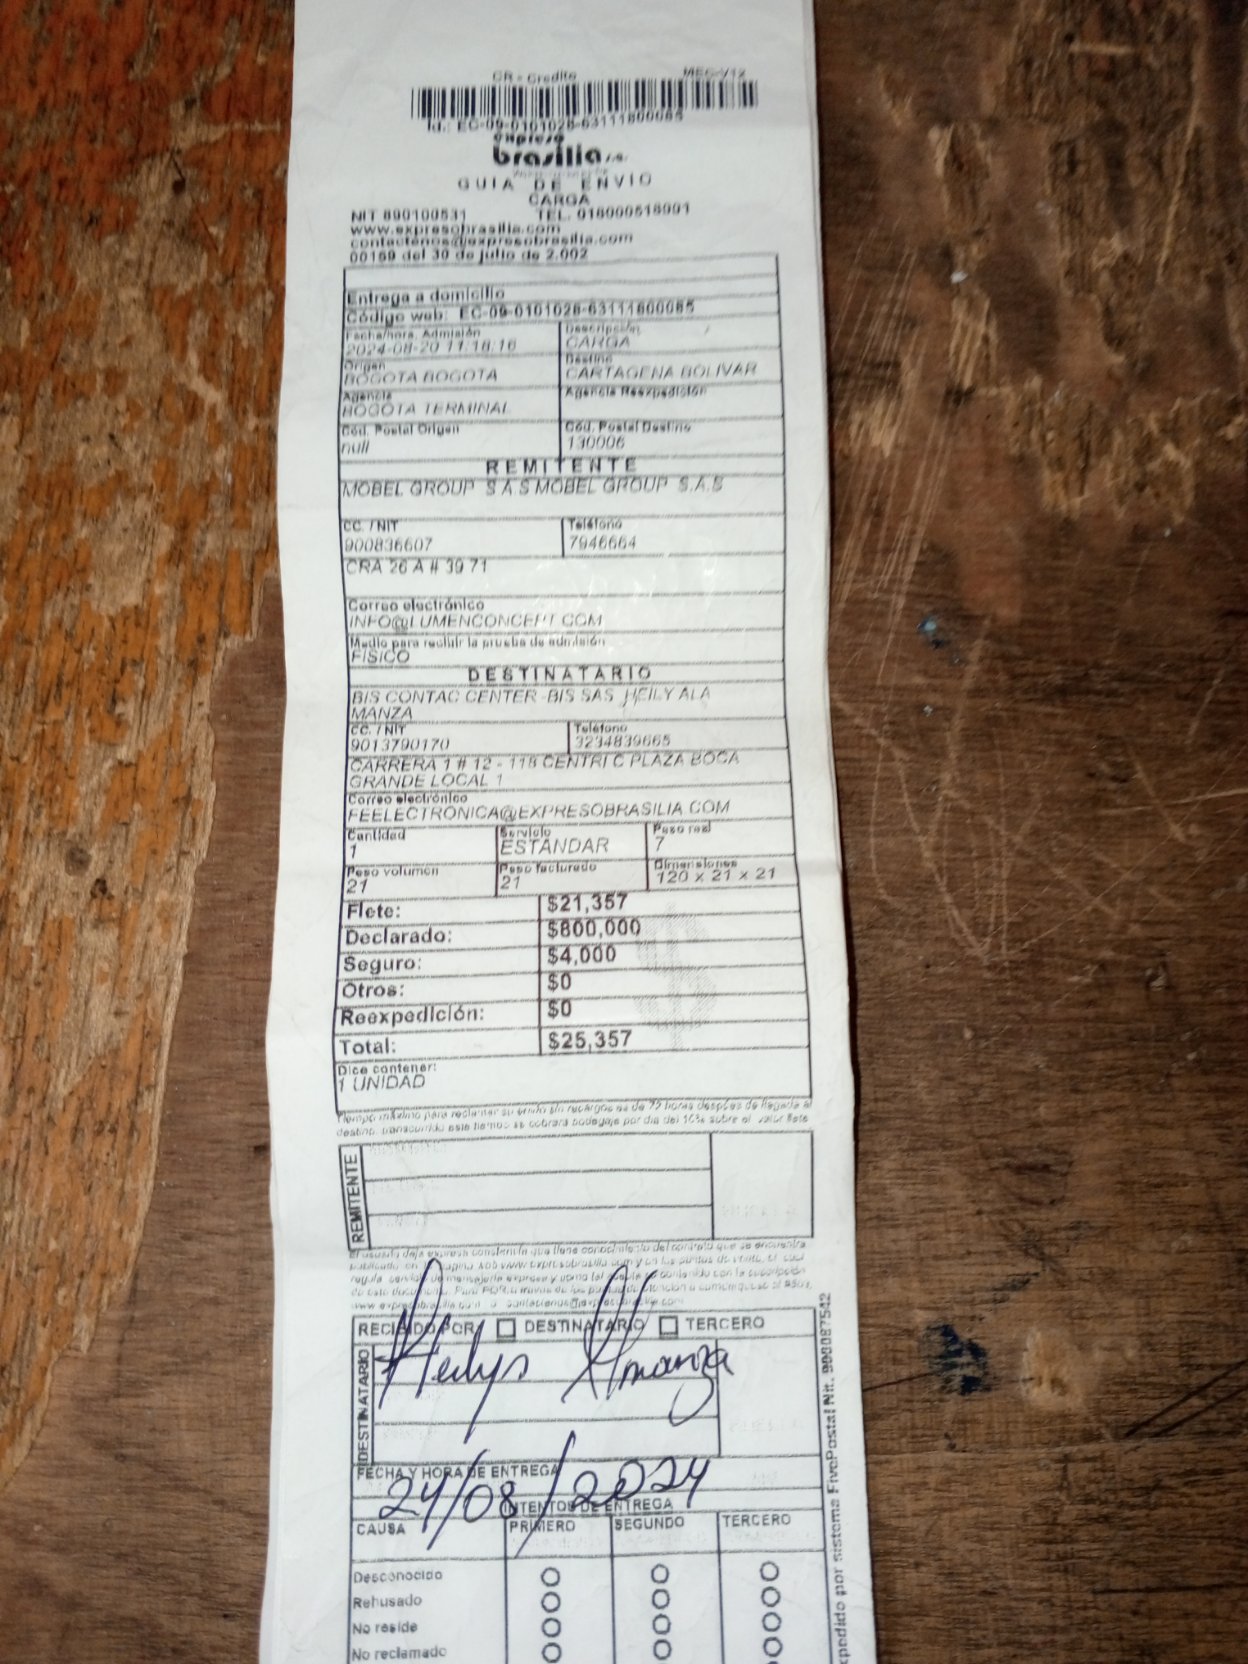 CR - Credito MEC-V12
Id.: EC-09-0101028-63111800085
expreso
brasilia s.a.
GUIA DE ENVIO
CARGA
NIT 890100531 TEL. 018000518001
www.expresobrasilia.com
contactenos@expresobrasilia.com
00159 del 30 de julio de 2.002
Entrega a domicilio
Código web: EC-09-0101028-63111800085
Fecha/hora. Admisión Descripción
2024-08-20 11:18:16 CARGA
Origen Destino
BOGOTA BOGOTA CARTAGENA BOLIVAR
Agencia Agencia Reexpedición
BOGOTA TERMINAL
Cód. Postal Origen Cód. Postal Destino
null 130006
REMITENTE
MOBEL GROUP S A S MOBEL GROUP S.A.S
CC. / NIT Teléfono
900836607 7946664
CRA 26 A # 39 71
Correo electrónico
INFO@LUMENCONCEPT.COM
Medio para recibir la prueba de admisión
FISICO
DESTINATARIO
BIS CONTAC CENTER -BIS SAS HEILY ALA
MANZA
CC. / NIT Teléfono
9013790170 3234839665
CARRERA 1 # 12 - 118 CENTRI C PLAZA BOCA
GRANDE LOCAL 1
Correo electrónico
FEELECTRONICA@EXPRESOBRASILIA.COM
Cantidad Servicio Peso real
1 ESTANDAR 7
Peso volumen Peso facturado Dimensiones
21 21 120 x 21 x 21
Flete: $21,357
Declarado: $800,000
Seguro: $4,000
Otros: $0
Reexpedición: $0
Total: $25,357
Dice contener:
1 UNIDAD
Tiempo máximo para reclamar su envío sin recargos es de 72 horas después de llegada al
destino, transcurrido este tiempo se cobrará bodegaje por día del 10% sobre el valor flete
REMITENTE
El usuario deja expresa constancia que tiene conocimiento del contrato que se encuentra
regula servicio de mensajería expresa y acepta su contenido con la suscripción
www.expresobrasilia.com o contactenos@expresobrasilia.com
RECIBIDO POR: DESTINATARIO TERCERO
DESTINATARIO
Heilys Almanza
FECHA Y HORA DE ENTREGA
24/08/2024
INTENTOS DE ENTREGA
CAUSA PRIMERO SEGUNDO TERCERO
Desconocido
Rehusado
No reside
No reclamado
xpedido por sistema FivePostal Nit. 900087542